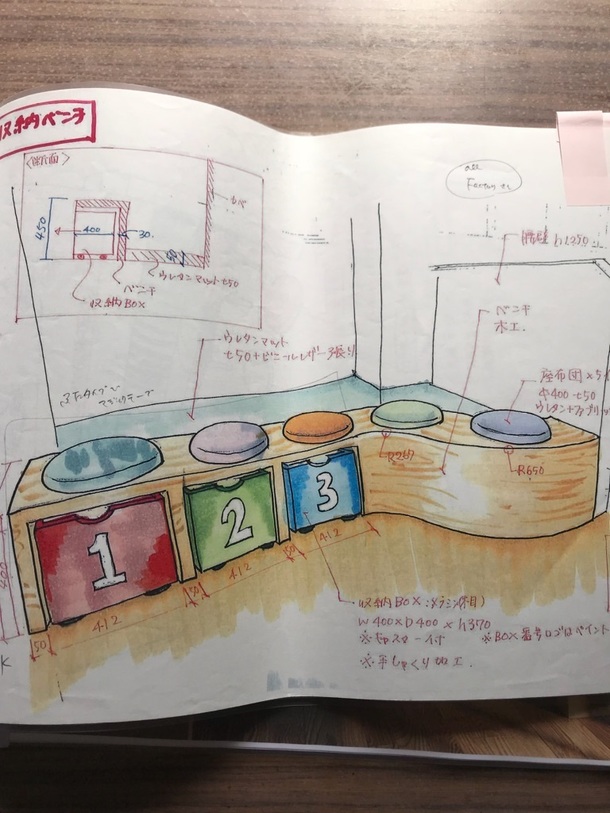 収納ベンチ
<断面>
カベ
450
400
30
50
ウレタンマット t50
ベンチ
収納BOX
腰壁 h1250
ベンチ
木工.
ウレタンマット
t50+ビニールレザー張り
マジックテープ
座布団×5ヶ
Φ400 t50
R267
R650
1
2
3
400
50
412
50
412
50
412
収納BOX:(メラミン
W400×D400×h370
※キャスター付
※BOX番号ロゴはペイント
※手しゃくり加工.